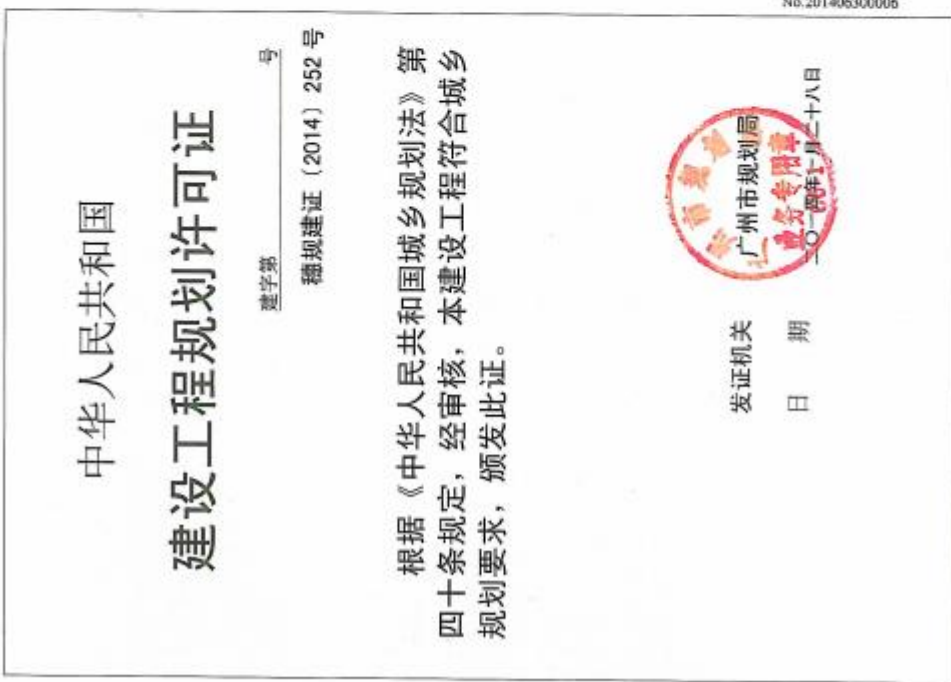 No.201406300006
中华人民共和国
建设工程规划许可证
建字第 号
穗规建证（2014）252 号
根据《中华人民共和国城乡规划法》第
四十条规定，经审核，本建设工程符合城乡
规划要求，颁发此证。
发证机关 广州市规划局
日 期 二〇一四年一月二十八日
业务专用章